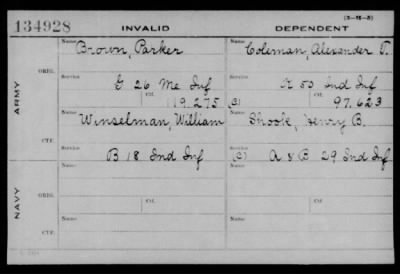 134928 INVALID DEPENDENT (3-15-3)
Name Brown, Parker Name Coleman, Alexander T.
ARMY
ORIG. Service G 26 Me Inf Service K 53 Ind Inf
Ctf. 119.275 (C) Ctf. 97.623
Name Winselman, William Name Shook, Henry B.
CTF. Service B 18 Ind Inf Service (C) A & B 29 Ind Inf
NAVY
Name Name
ORIG. Service Ctf. Service Ctf.
Name Name
CTF. Service Service